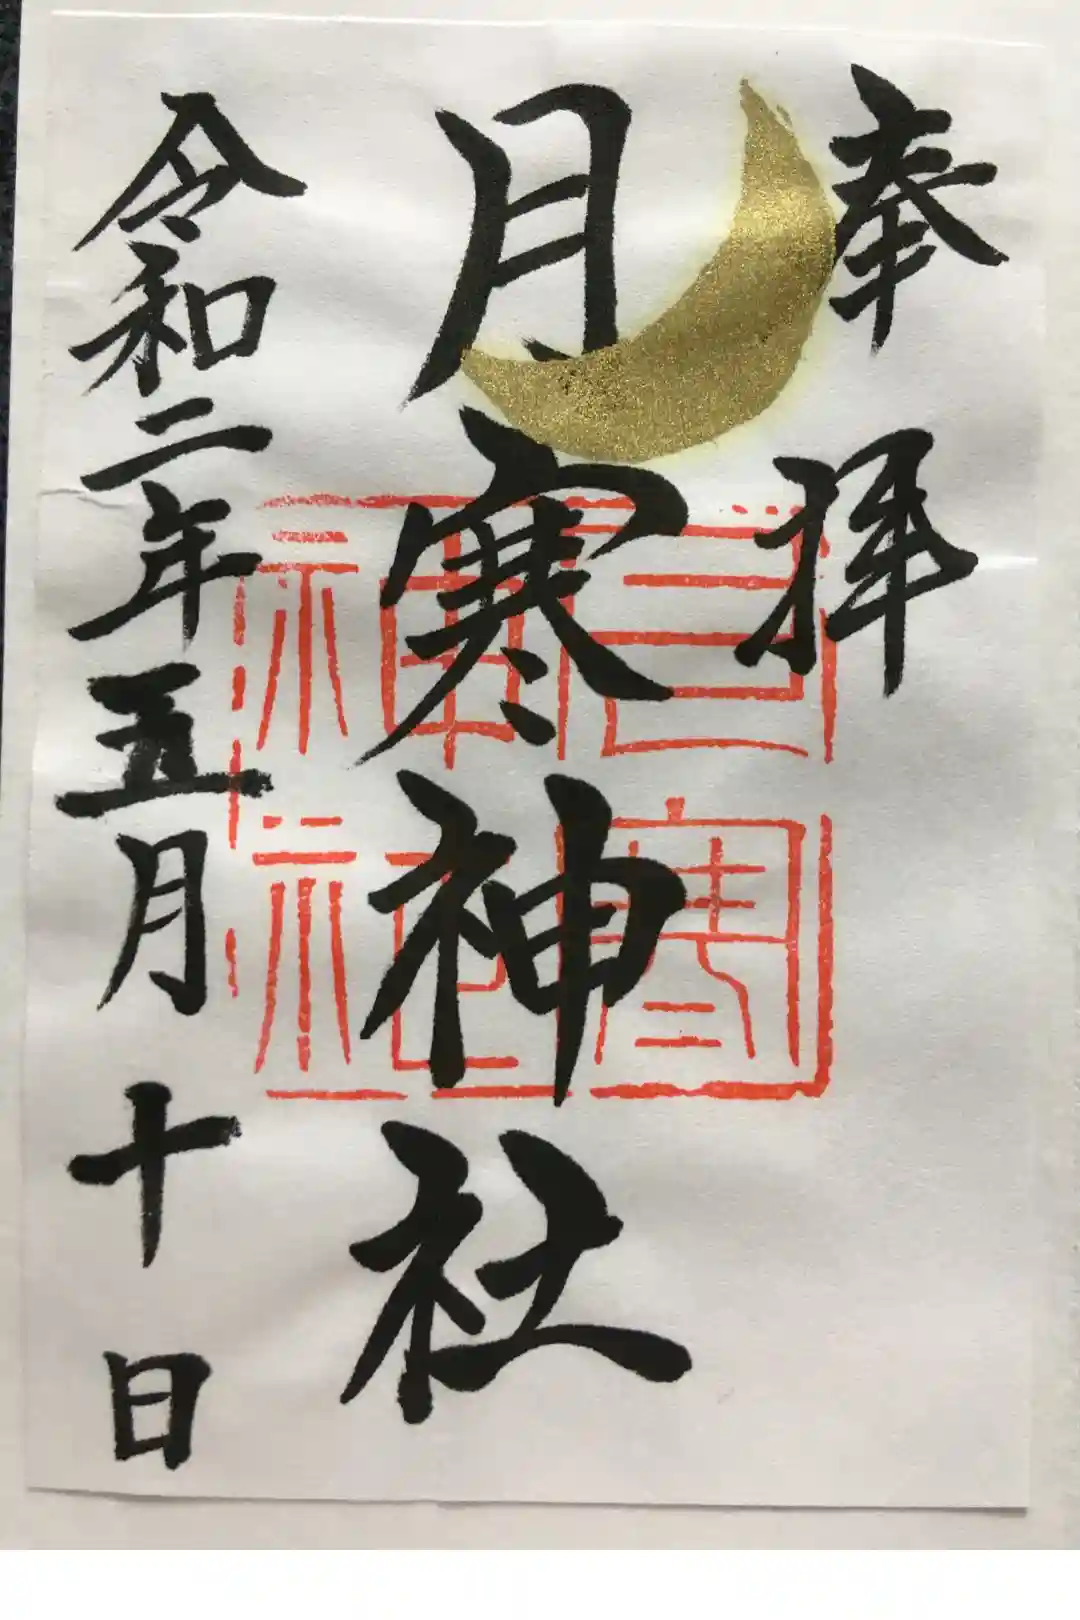 奉拝
月寒神社
令和二年五月十日
月寒
神社